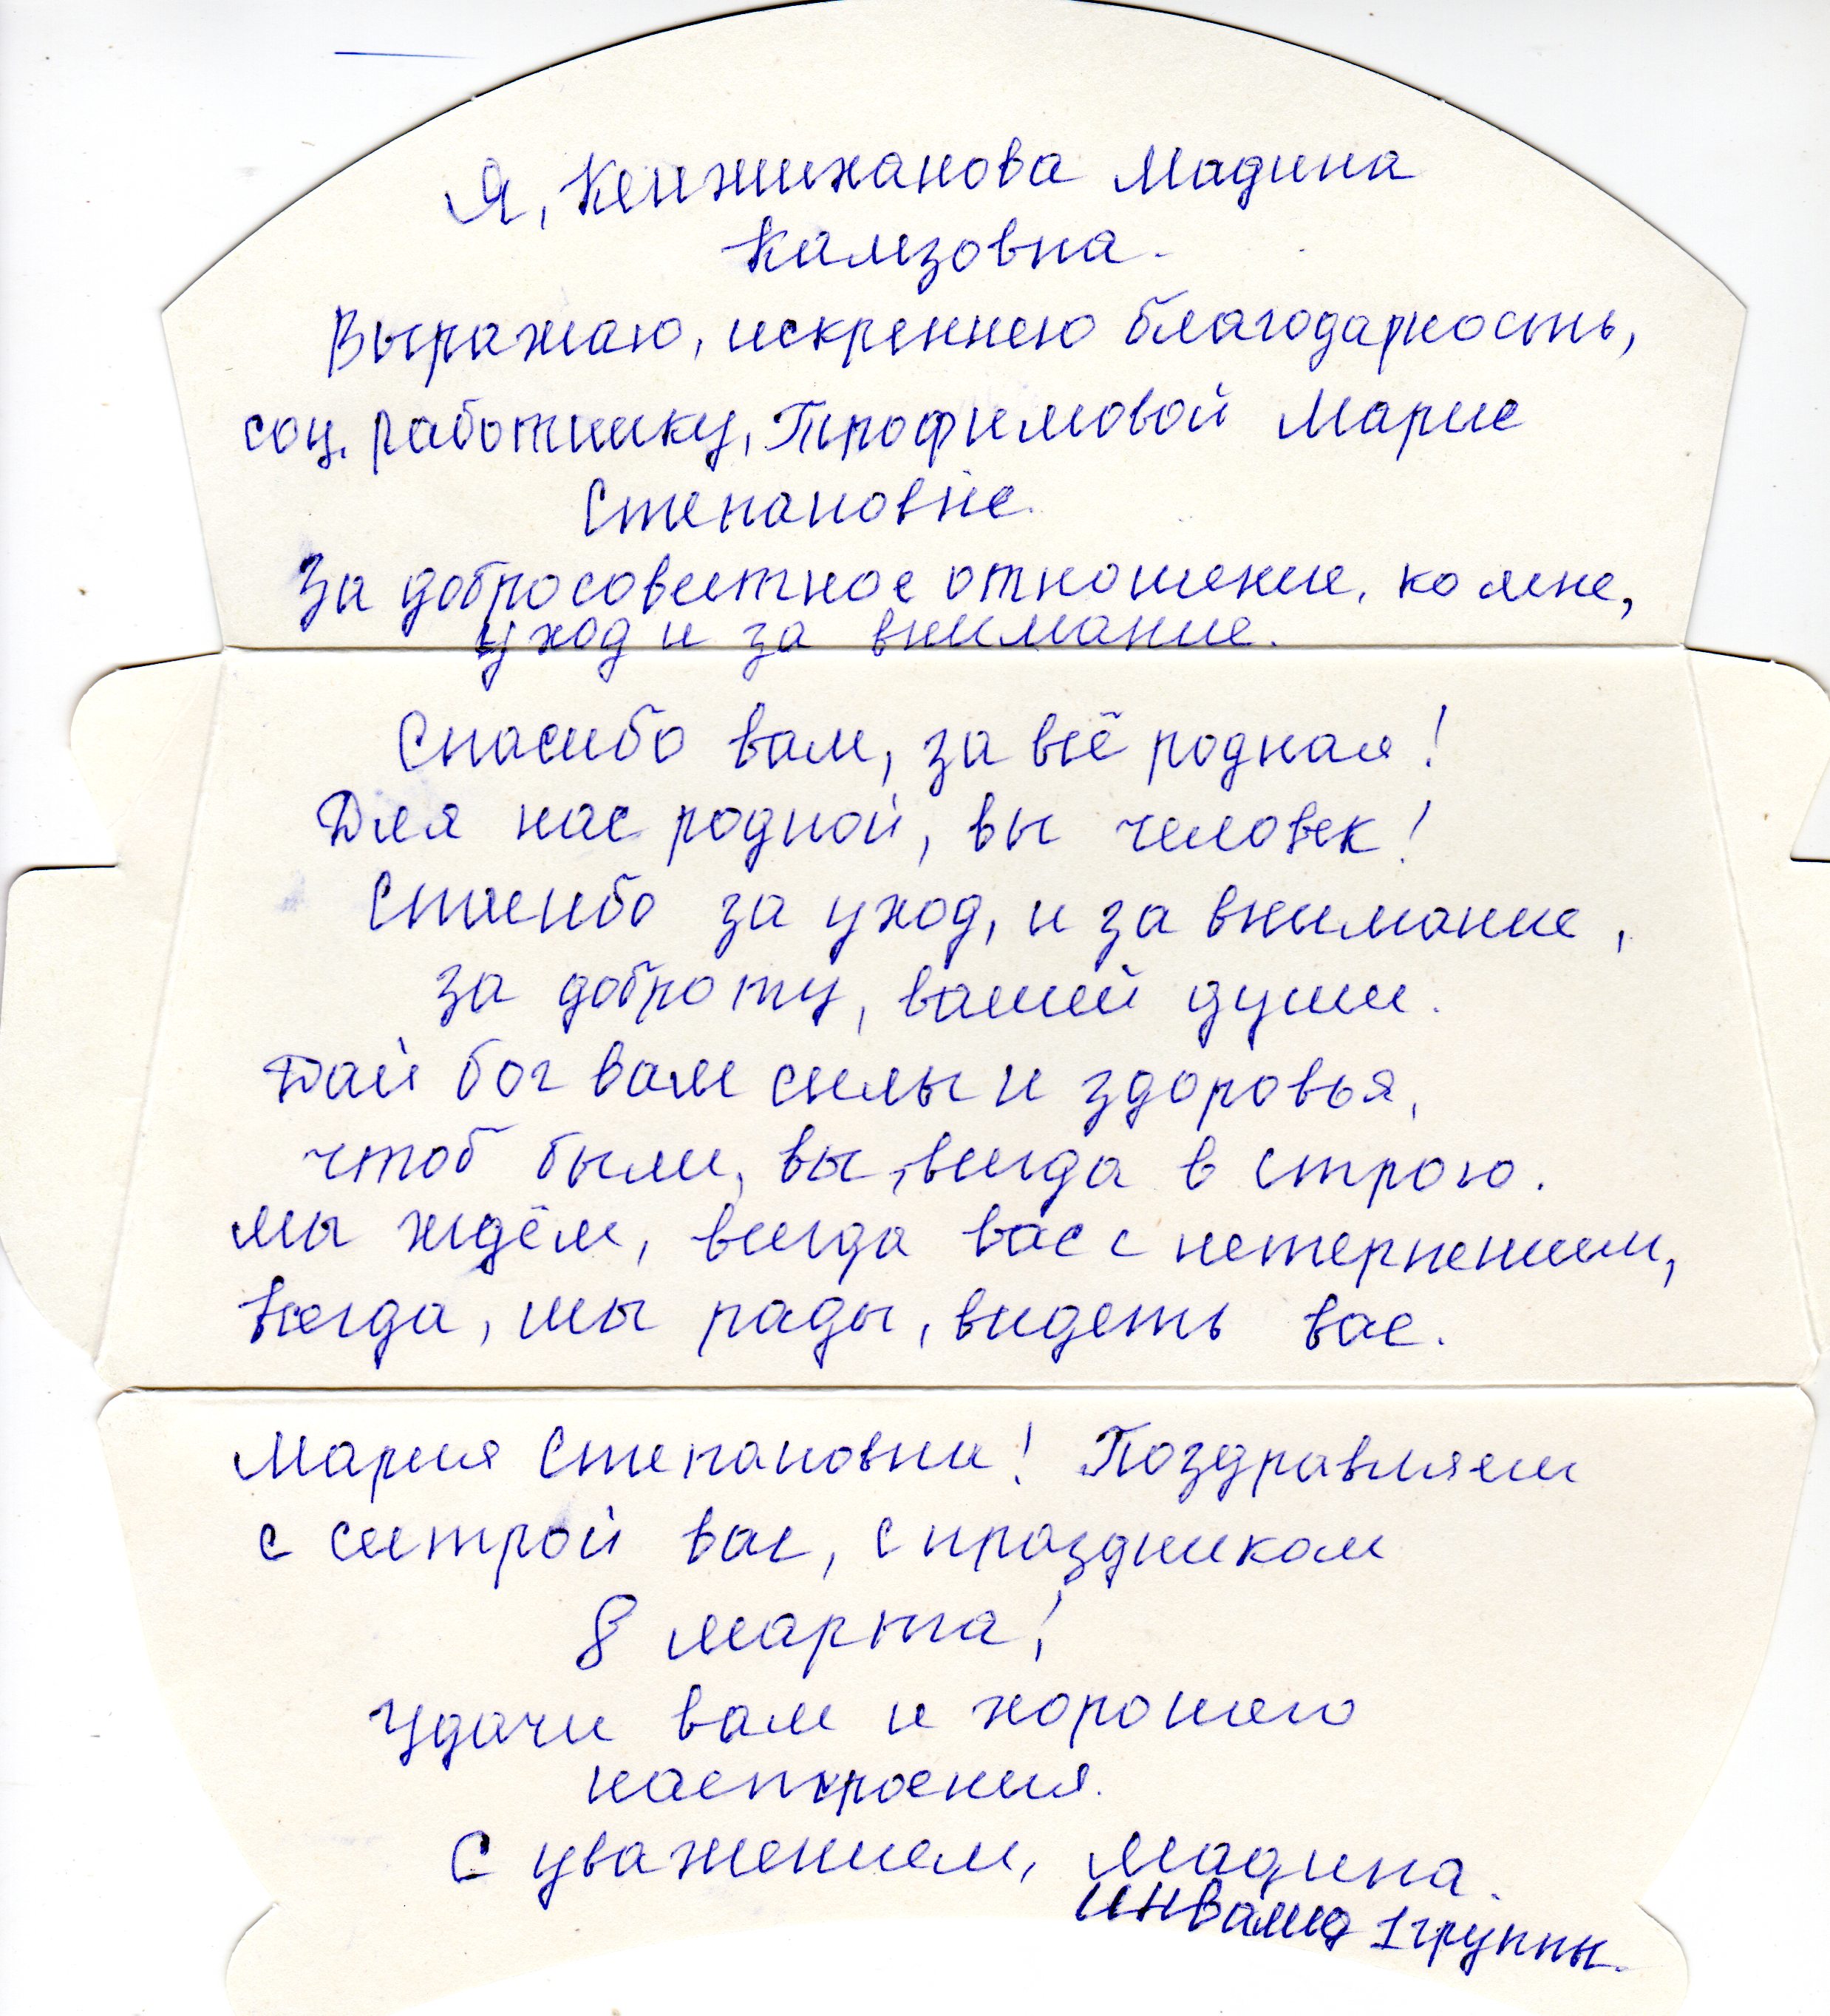 Я, Кенжиханова Мадина
Камзовна.
Выражаю, искреннею благодарность,
соц. работнику, Трофимовой Марие
Степановне.
За добросовестное отношение, ко мне,
уход и за внимание.
Спасибо вам, за всё родная!
Для нас родной, вы человек!
Спасибо за уход, и за внимание,
за доброту, вашей души.
Дай бог вам силы и здоровья,
чтоб были, вы, всегда в строю.
Мы ждём, всегда вас с нетерпением,
Всегда, мы рады, видеть вас.
Мария Степановна! Поздравляем
с сестрой вас, с праздником
8 марта!
Удачи вам и хорошего
настроения.
С уважением, Мадина.
инвалид 1 группы.